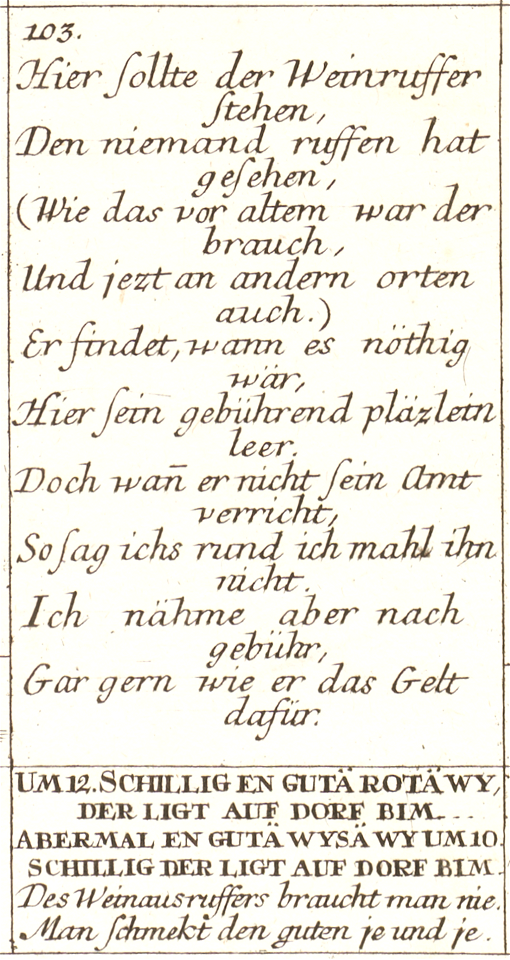 103.
Hier ſollte der Weinruffer
ſtehen,
Den niemand ruffen hat
geſehen,
(Wie das vor altem war der
brauch,
Und jezt an andern orten
auch.)
Er findet, wann es nöthig
wär,
Hier ſein gebührend pläzlein
leer.
Doch wan̄ er nicht ſein Amt
verricht,
So ſag ichs rund ich mahl ihn
nicht.
Ich nähme aber nach
gebühr,
Gar gern wie er das Gelt
dafür.
UM 12. SCHILLIG EN GUTÄ ROTÄ WY,
DER LIGT AUF DORF BIM....
ABERMAL EN GUTÄ WYSÄ WY UM 10.
SCHILLIG DER LIGT AUF DORF BIM.
Des Weinausruffers braucht man nie.
Man ſchmekt den guten je und je.